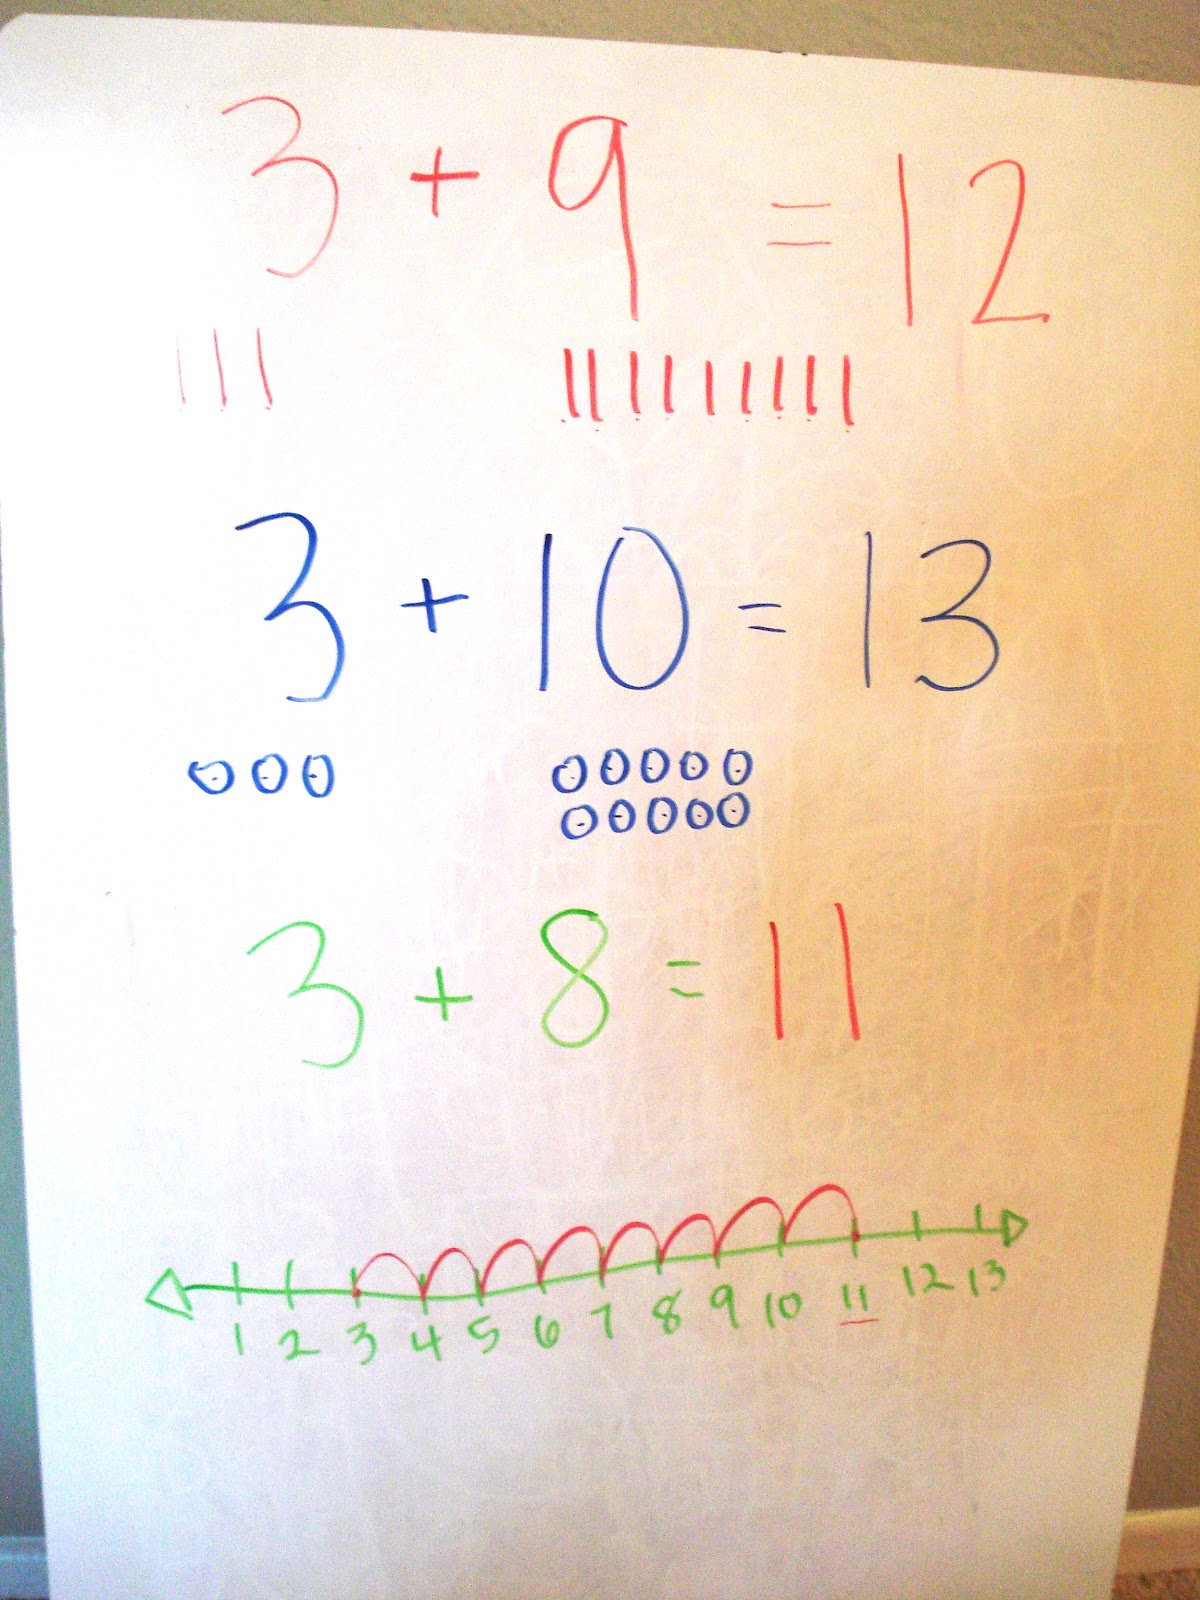 3 + 9 = 12
3 + 10 = 13
3 + 8 = 11
1 2 3 4 5 6 7 8 9 10 11 12 13